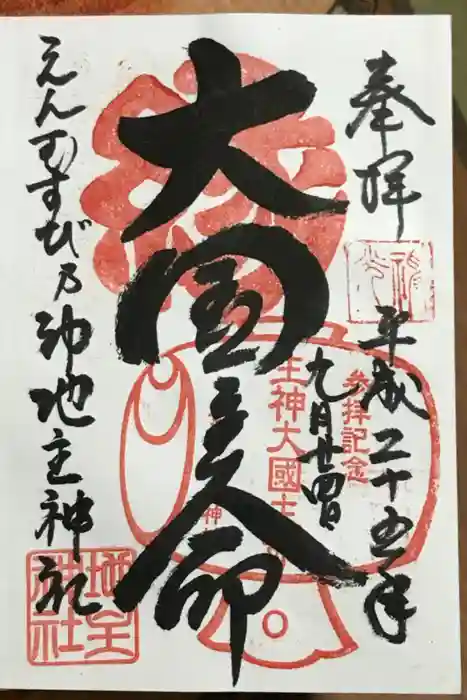 奉拝
平成二十五年
九月廿四日
参拝記念
主神大國主
神
大国主命
えんむすび乃神地主神社
地主
神社